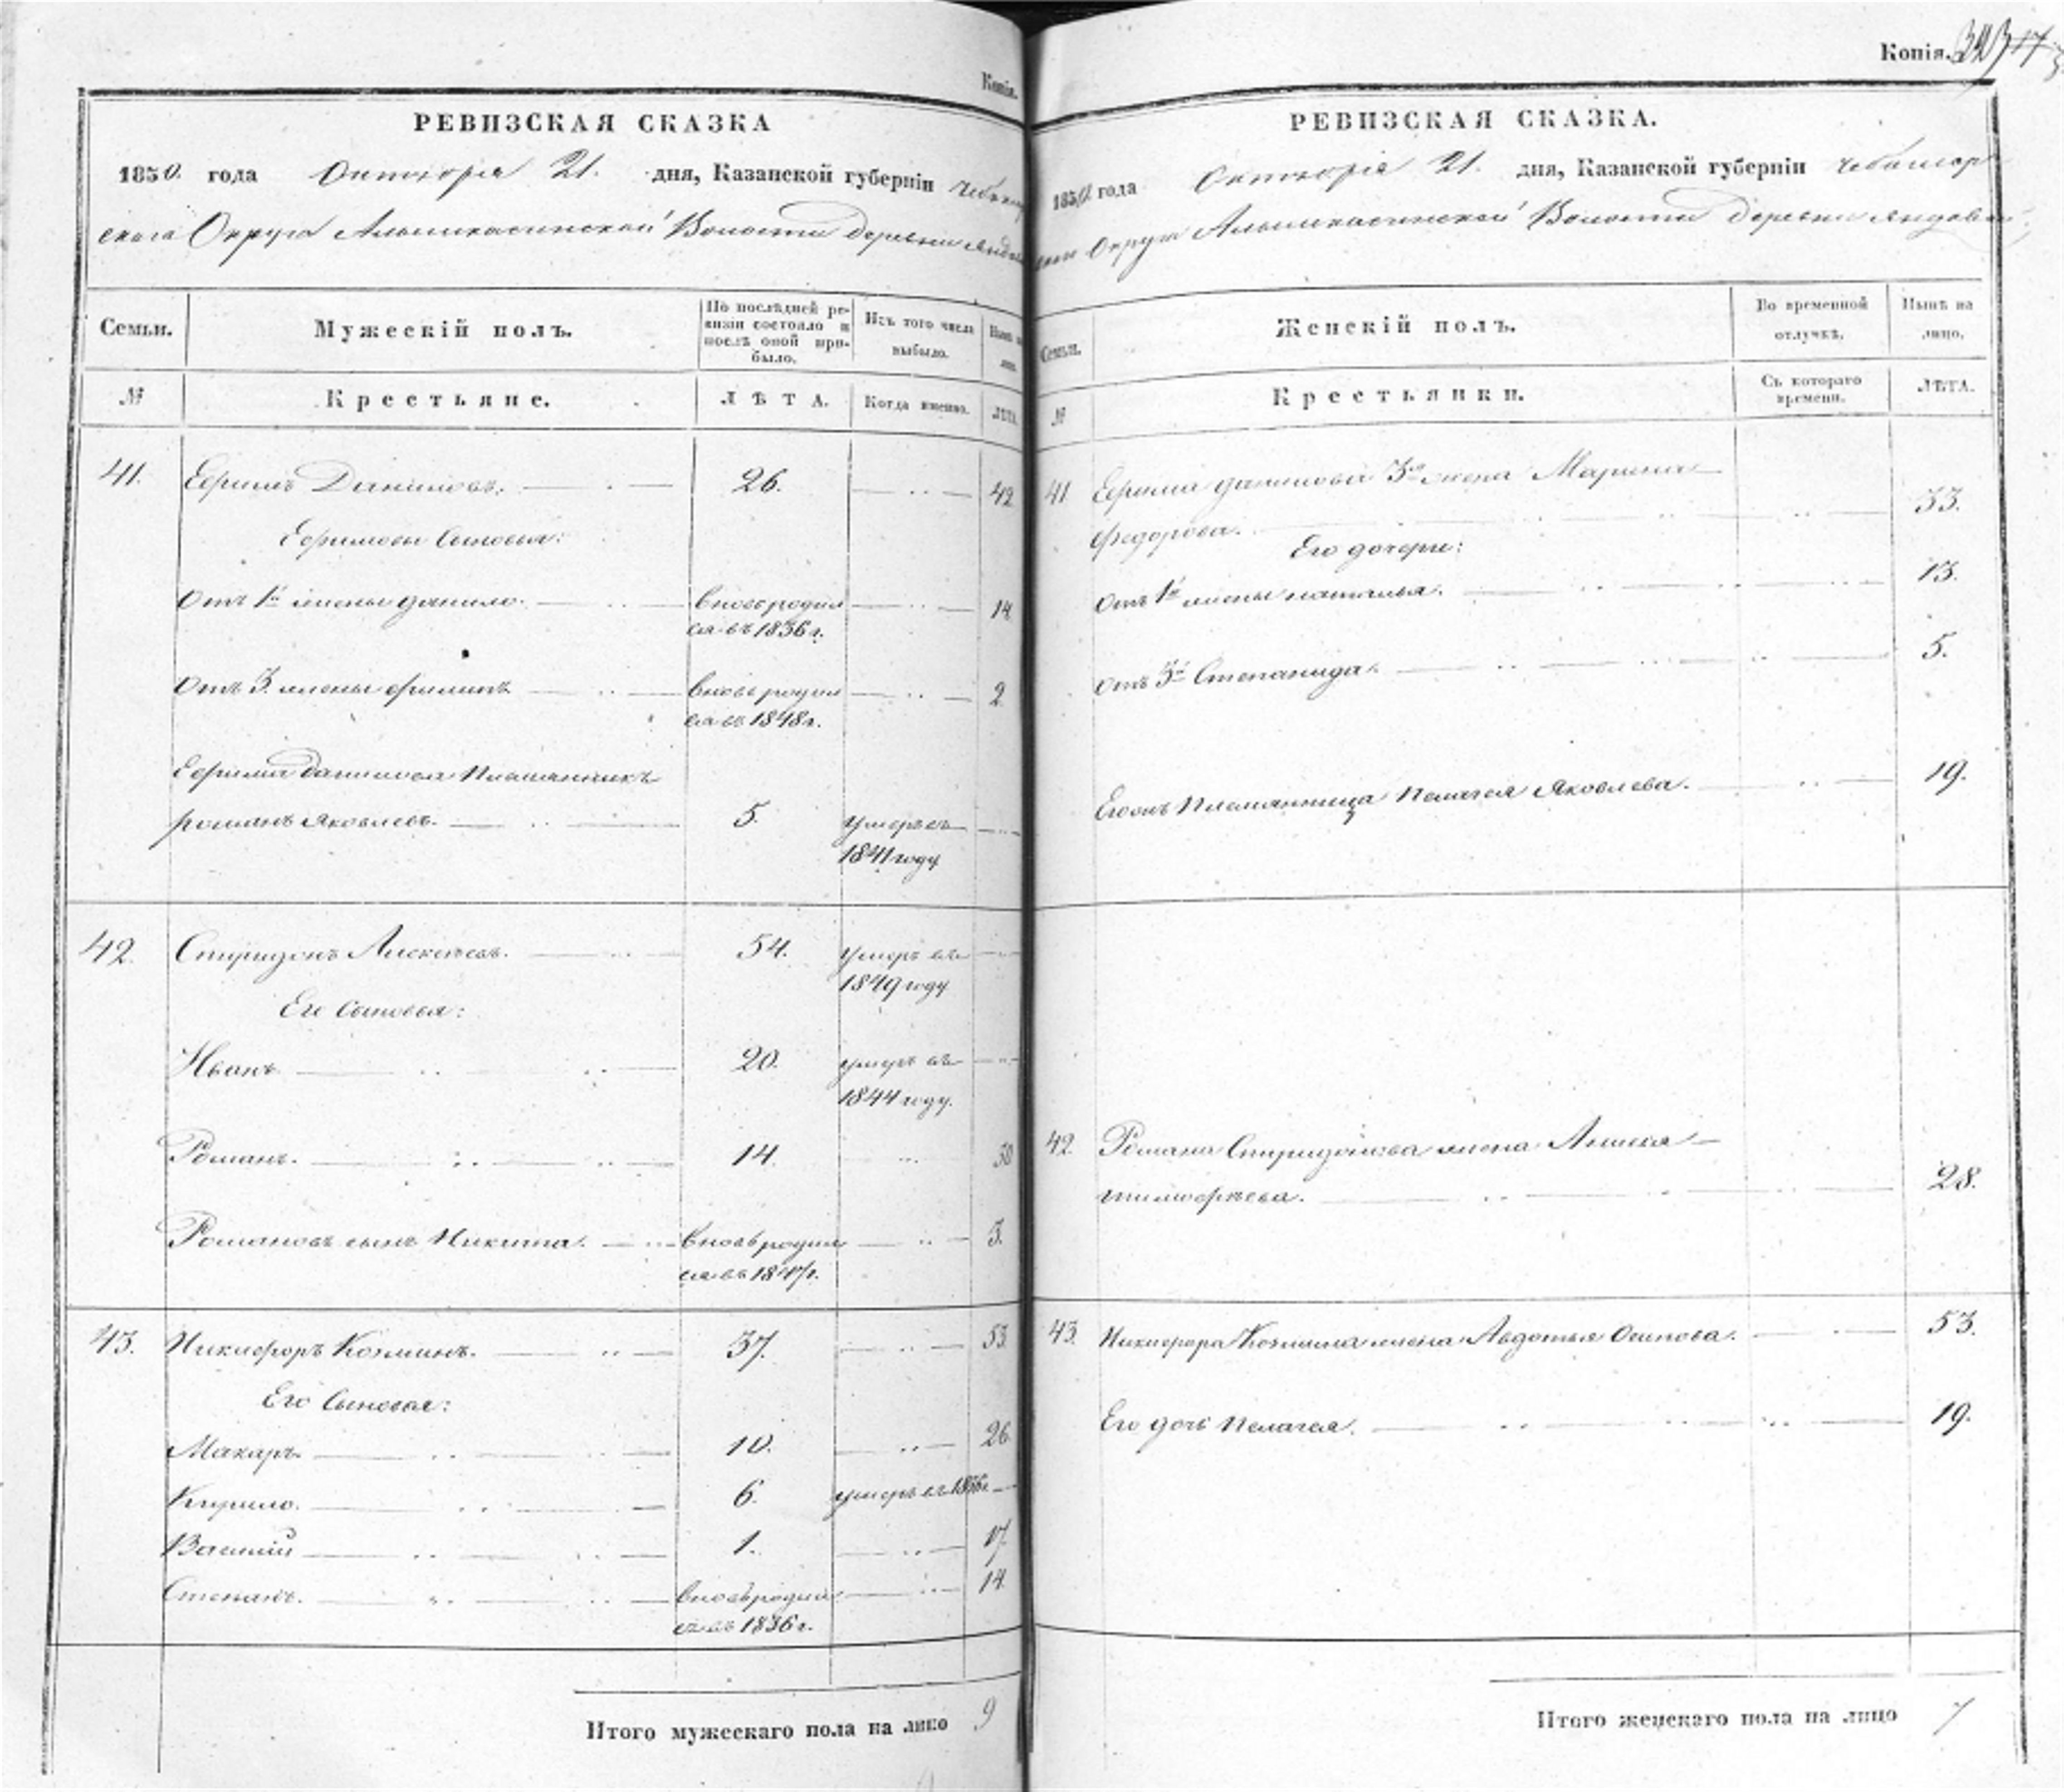 Копія.
РЕВИЗСКАЯ СКАЗКА
1850. года Октября 21. дня, Казанской губерніи
скаго Округа Волости деревни
Семьи.
Мужескій полъ.
По послѣдней ревизіи состояло и послѣ оной прибыло.
Изъ того числа выбыло.
№
Крестьяне.
ЛѢТА.
Когда именно.
ЛѢТА.
41. Ефимъ Даниловъ. 26. 42
Ефимовы Сыновья:
Отъ 1й жены Данило. вновь родил 14
ся въ 1836 г.
Отъ 3. жены Филипъ вновь родил 2
ся въ 1848 г.
Ефима Данилова Племянникъ
Романъ Яковлевъ. 5. умеръ въ
1841 году
42. Спиридонъ Алексѣевъ. 54. умеръ въ
1849 году
Его Сыновья:
Иванъ 20. умеръ въ
1844 году.
Романъ. 14. 30
Романовъ сынъ Никита. вновь родил 3.
ся въ 1847 г.
43. Никифоръ Козминъ. 37. 53
Его Сыновья:
Макаръ 10. 26
Кирило. 6. умеръ въ 1836 г.
Василий 1. 17
Степанъ. вновь родил 14
ся въ 1836 г.
Итого мужескаго пола на лицо 9
Копія.
РЕВИЗСКАЯ СКАЗКА.
1850 года Октября 21. дня, Казанской губерніи Чебоксар
Округа Волости деревни
Семьи.
Женскій полъ.
Во временной отлучкѣ.
Нынѣ на лицо.
№
Крестьянки.
Съ котораго времени.
ЛѢТА.
41 Ефима Данилова 3я жена Марина
Федорова. 33.
Его дочери:
Отъ 1й жены Наталья. 13.
Отъ 3й Степанида. 5.
Племянница Пелагея Яковлева. 19.
42. Романа Спиридонова жена
Тимофѣева. 28.
43. Никифора Козмина жена Авдотья Осипова. 53.
Его дочь Пелагея. 19.
Итого женскаго пола на лицо 7